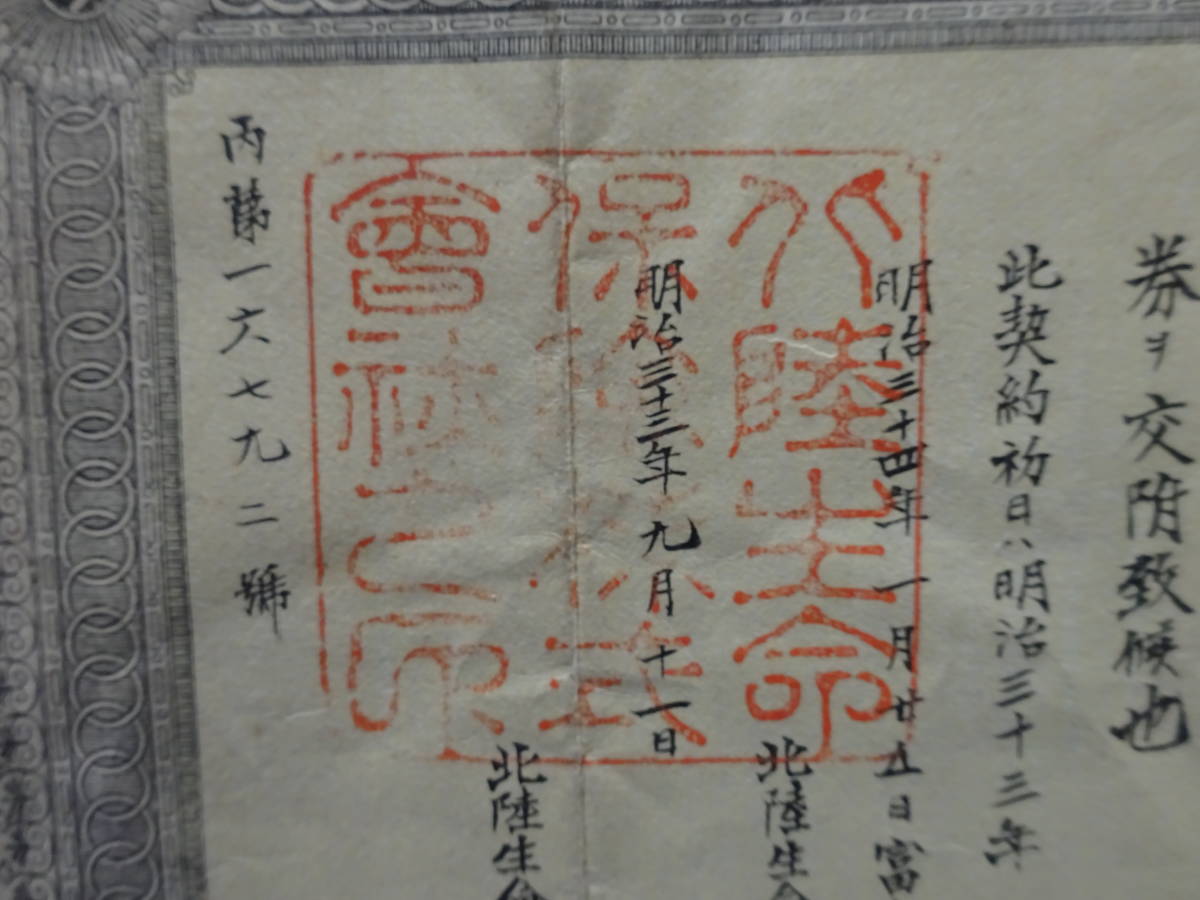 券ヲ交附致候也
此契約初日ハ明治三十三年
明治三十四年一月廿五日富
北陸生命
明治三十三年九月十一日
北陸生命
北陸生命
保険株式
會社之印
丙第一六七九二號